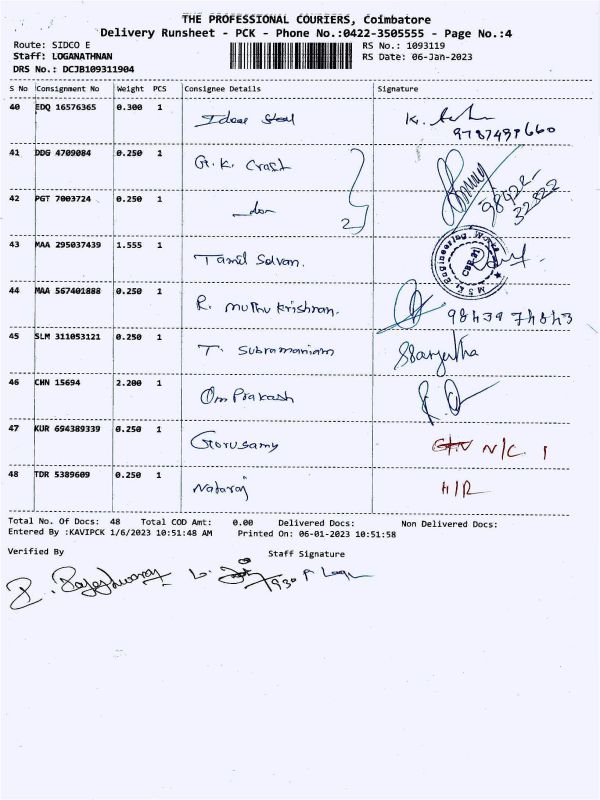 THE PROFESSIONAL COURIERS, Coimbatore
Delivery Runsheet - PCK - Phone No.:0422-3505555 - Page No.:4
Route: SIDCO E
RS No.: 1093119
Staff: LOGANATHNAN
RS Date: 06-Jan-2023
DRS No.: DCJB109311904
S No Consignment No Weight PCS Consignee Details Signature
40 EDQ 16576365 0.300 1
41 DDG 4709084 0.250 1 G.K. Crast
42 PGT 7003724 0.250 1 2
43 MAA 295037439 1.555 1 Tamil Selvan.
44 MAA 567401888 0.250 1 R. Muthu Krishnan.
45 SLM 311053121 0.250 1 T. Subramaniam
46 CHN 15694 2.200 1 Om Prakash
47 KUR 694389339 0.250 1 Gorusamy N/C 1
48 TDR 5389609 0.250 1 Nataraj H/R
Total No. Of Docs: 48 Total COD Amt: 0.00 Delivered Docs: Non Delivered Docs:
Entered By :KAVIPCK 1/6/2023 10:51:48 AM Printed On: 06-01-2023 10:51:58
Verified By Staff Signature